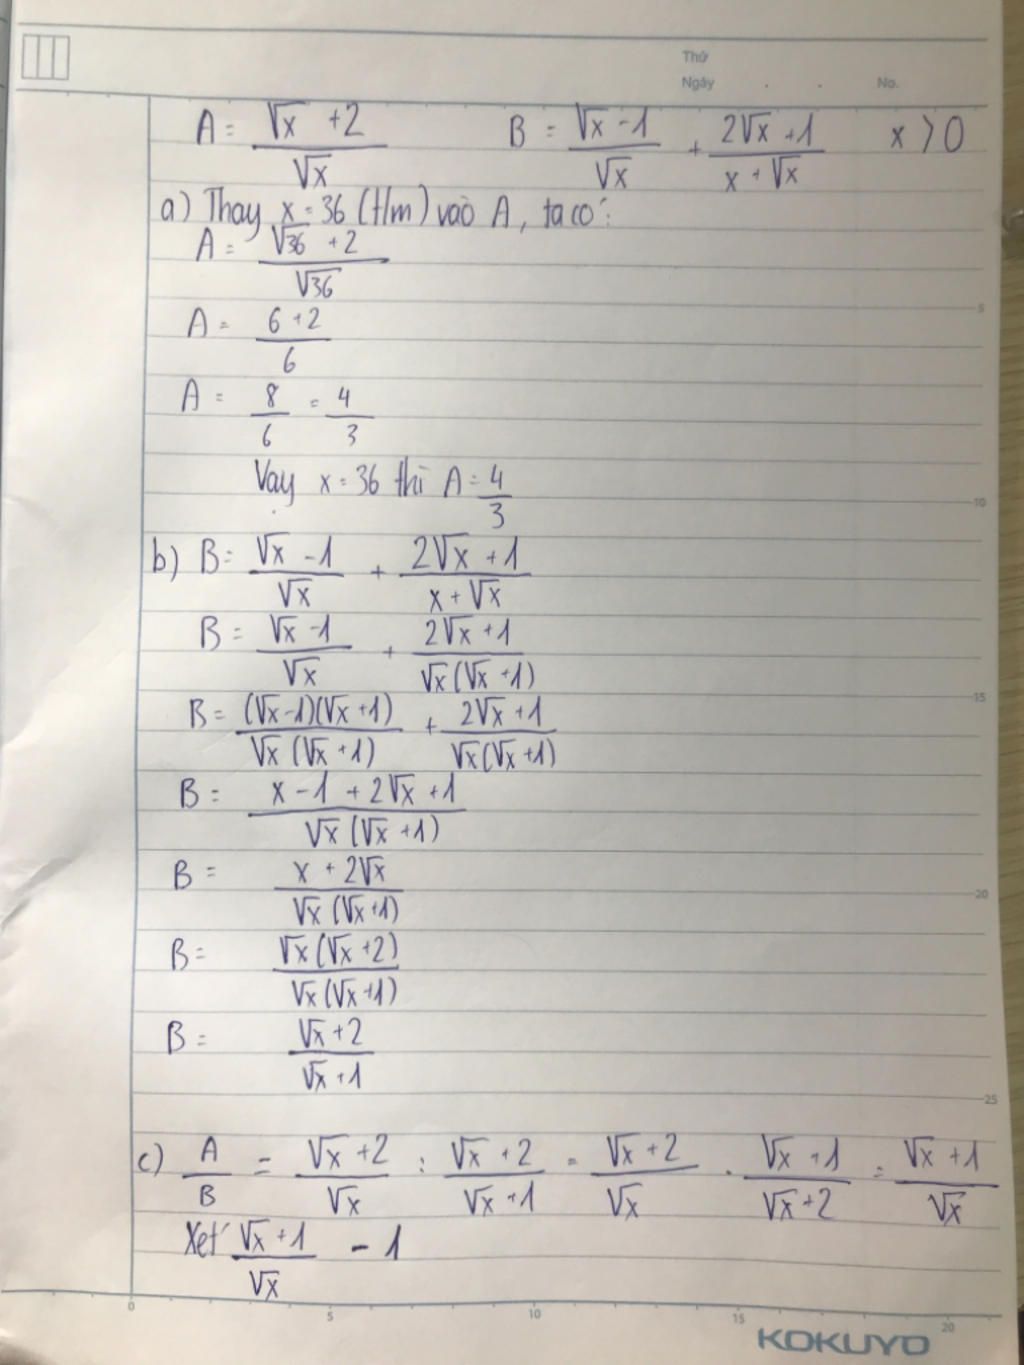 Thứ
Ngày . . No.
A = (√x + 2)/√x B = (√x - 1)/√x + (2√x + 1)/(x + √x) x > 0
a) Thay x = 36 (t/m) vào A, ta có:
A = (√36 + 2)/√36
A = (6 + 2)/6
A = 8/6 = 4/3
Vậy x = 36 thì A = 4/3
b) B = (√x - 1)/√x + (2√x + 1)/(x + √x)
B = (√x - 1)/√x + (2√x + 1)/(√x(√x + 1))
B = ((√x - 1)(√x + 1))/(√x(√x + 1)) + (2√x + 1)/(√x(√x + 1))
B = (x - 1 + 2√x + 1)/(√x(√x + 1))
B = (x + 2√x)/(√x(√x + 1))
B = (√x(√x + 2))/(√x(√x + 1))
B = (√x + 2)/(√x + 1)
c) A/B = (√x + 2)/√x : (√x + 2)/(√x + 1) = (√x + 2)/√x . (√x + 1)/(√x + 2) = (√x + 1)/√x
Xét (√x + 1)/√x - 1
5
10
15
20
25
0 5 10 15 20
KOKUYO